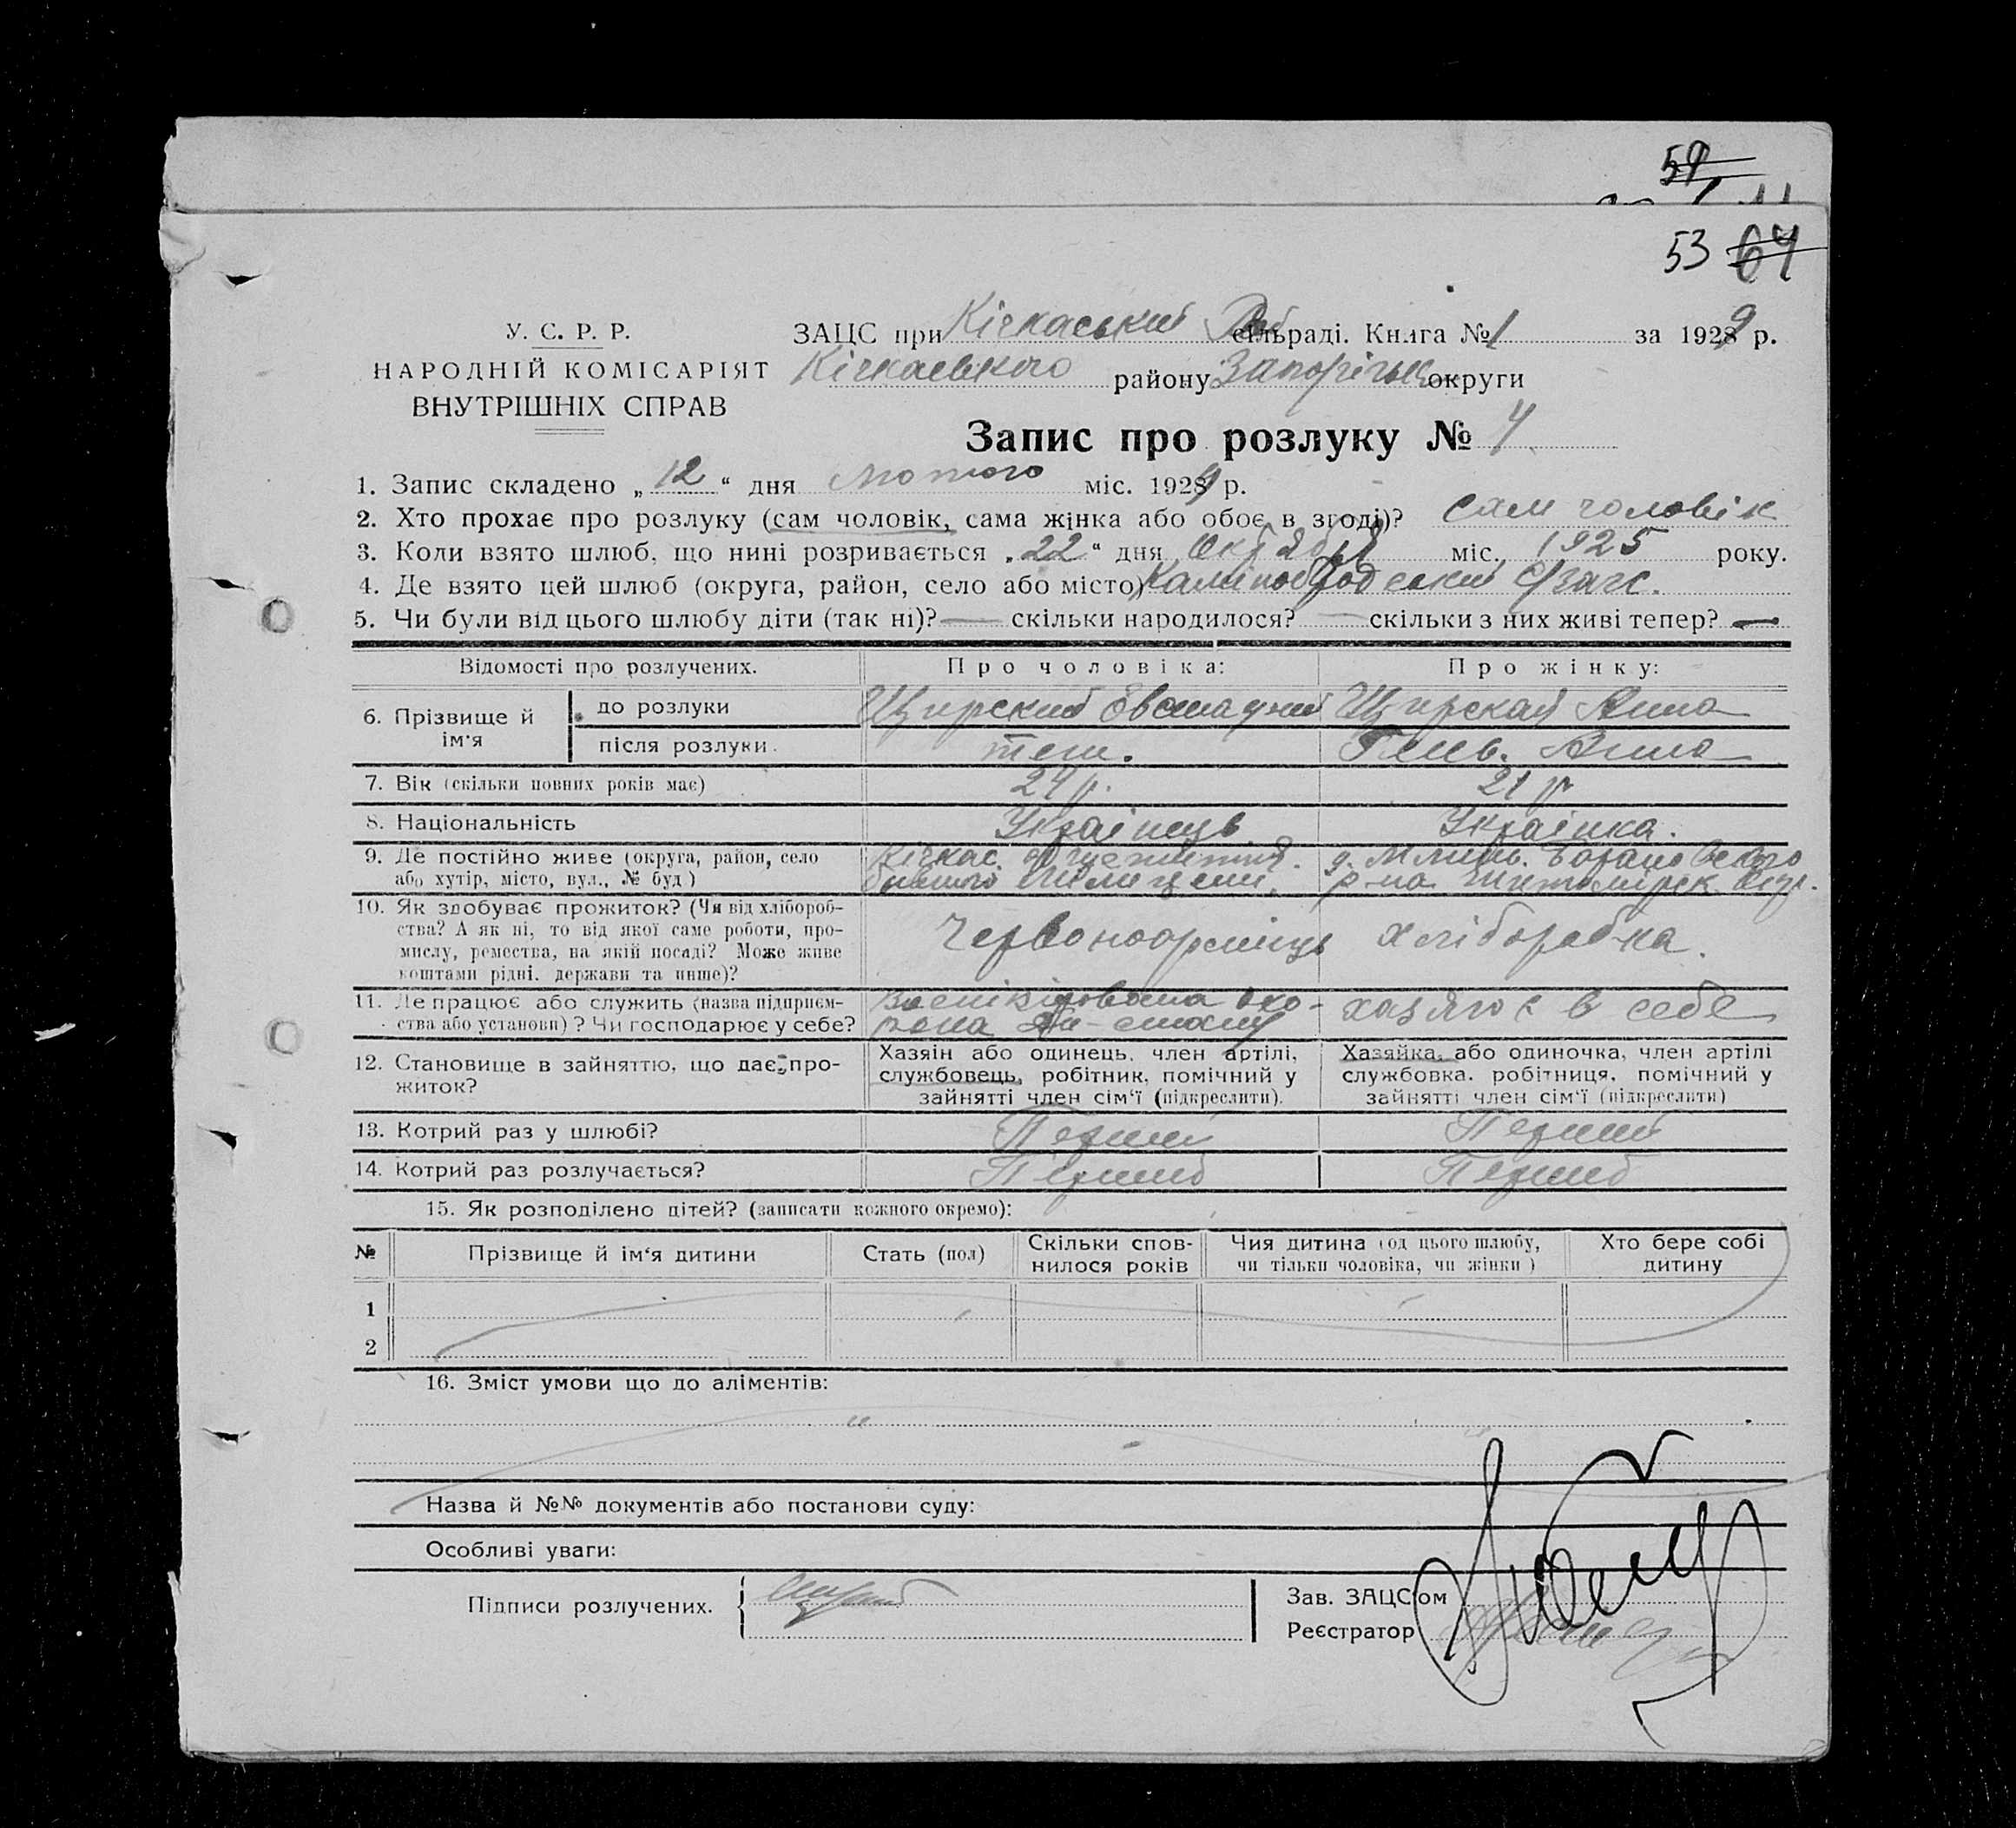 59
53 64
У. С. Р. Р.
НАРОДНІЙ КОМІСАРІЯТ
ВНУТРІШНІХ СПРАВ
ЗАЦС при Кічкаський сільраді. Книга № 1 за 1929 р.
Кічкаського району Запоріськ округи
Запис про розлуку № 4
1. Запис складено „12“ дня Лютого міс. 1929 р.
2. Хто прохає про розлуку (сам чоловік, сама жінка або обоє в згоді)? сам чоловік
3. Коли взято шлюб, що нині розривається „22“ дня Октября міс. 1925 року.
4. Де взято цей шлюб (округа, район, село або місто)
5. Чи були від цього шлюбу діти (так ні)? — скільки народилося? — скільки з них живі тепер? —
Відомості про розлучених. Про чоловіка: Про жінку:
6. Прізвище й ім'я до розлуки Щирский Щирская Анна
після розлуки теж. Анна
7. Вік (скільки повних років має) 24 р. 21 р
8. Національність Українець Українка.
9. Де постійно живе (округа, район, село Кічкас.
або хутір, місто, вул., № буд) р-на Житомірск. Окр.
10. Як здобуває прожиток? (Чи від хлібороб-
ства? А як ні, то від якої саме роботи, про-
мислу, ремества, на якій посаді? Може живе
коштами рідні, держави та инше)?
Червоноармієць хліборобка.
11. Де працює або служить (назва підприєм-
ства або установи)? Чи господарює у себе?
хазяює в себе
12. Становище в зайняттю, що дає про-
житок?
Хазяін або одинець, член артілі,
службовець, робітник, помічний у
зайнятті член сім'ї (підкреслити).
Хазяйка, або одиночка, член артілі
службовка, робітниця, помічний у
зайнятті член сім'ї (підкреслити)
13. Котрий раз у шлюбі? Перший Перший
14. Котрий раз розлучається? Перший Перший
15. Як розподілено дітей? (записати кожного окремо):
№ Прізвище й ім'я дитини Стать (пол) Скільки спов-
нилося років Чия дитина (од цього шлюбу,
чи тільки чоловіка, чи жінки) Хто бере собі
дитину
1
2
16. Зміст умови що до аліментів:
Назва й №№ документів або постанови суду:
Особливі уваги:
Підписи розлучених.
Зав. ЗАЦС'ом
Реєстратор